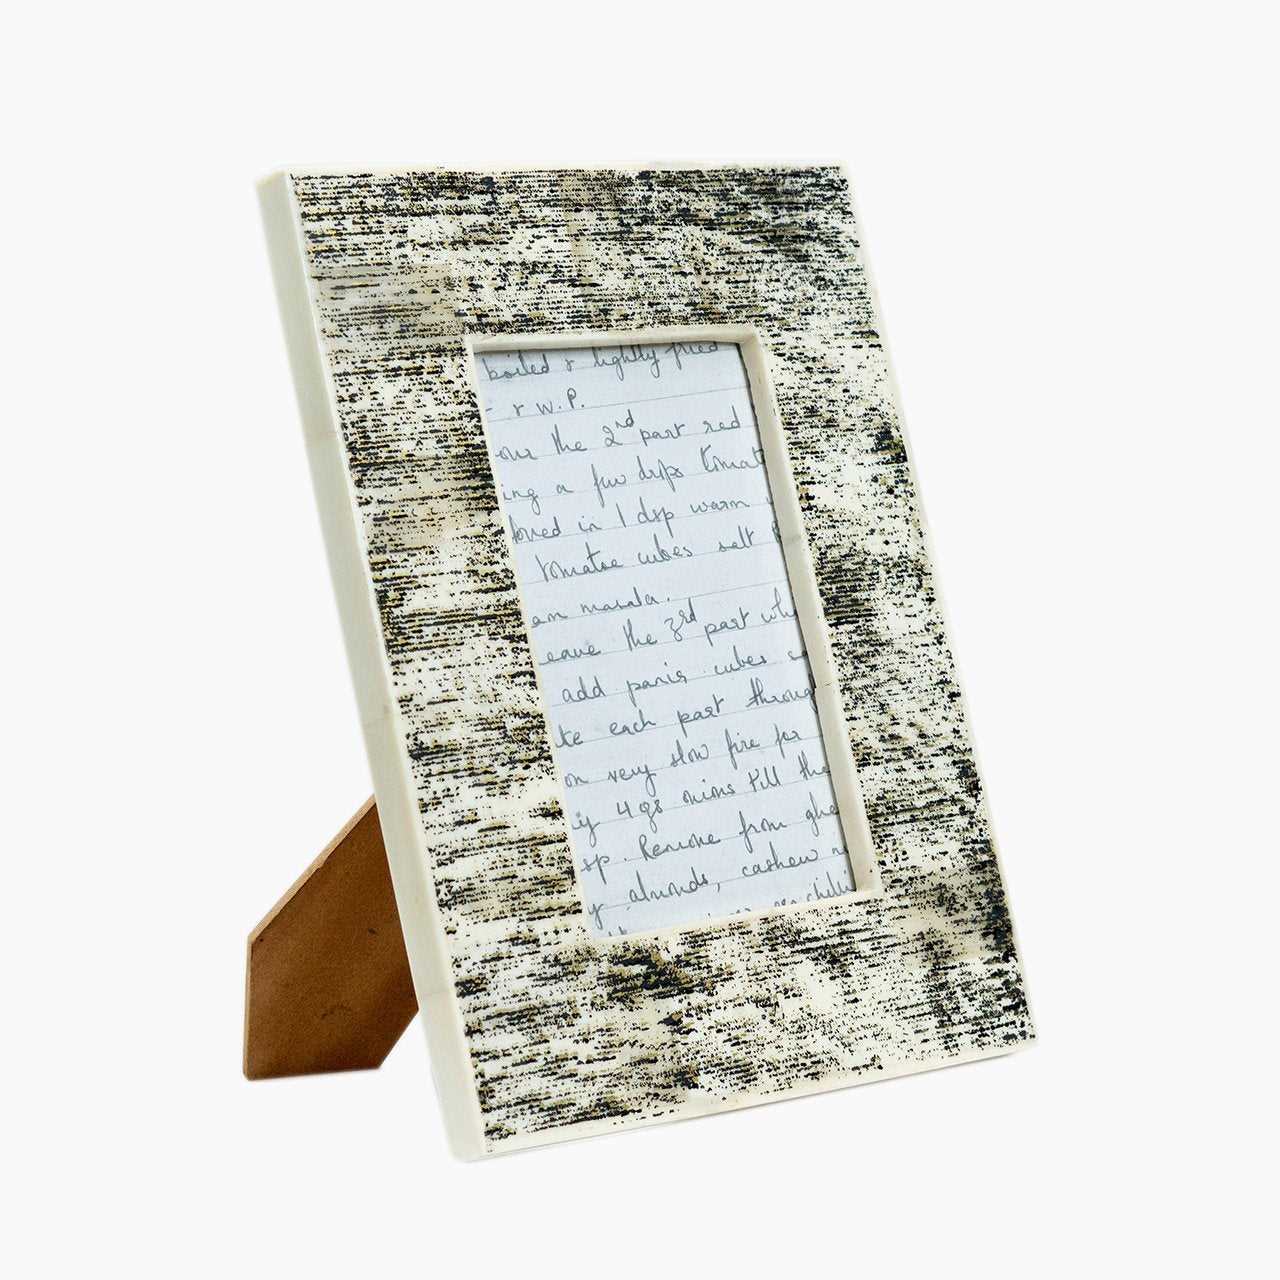 boiled & lightly fried
- & W.P.
our the 2nd part red
ing a few drps tomat
in 1 dsp warm
tomatoe cubes salt
am masala.
eave the 3rd part whi
add panir cubes
te each part throug
on very slow fire for
y 4 qs mins till the
sp. Remove from ghe
y almonds, cashew n
chilli